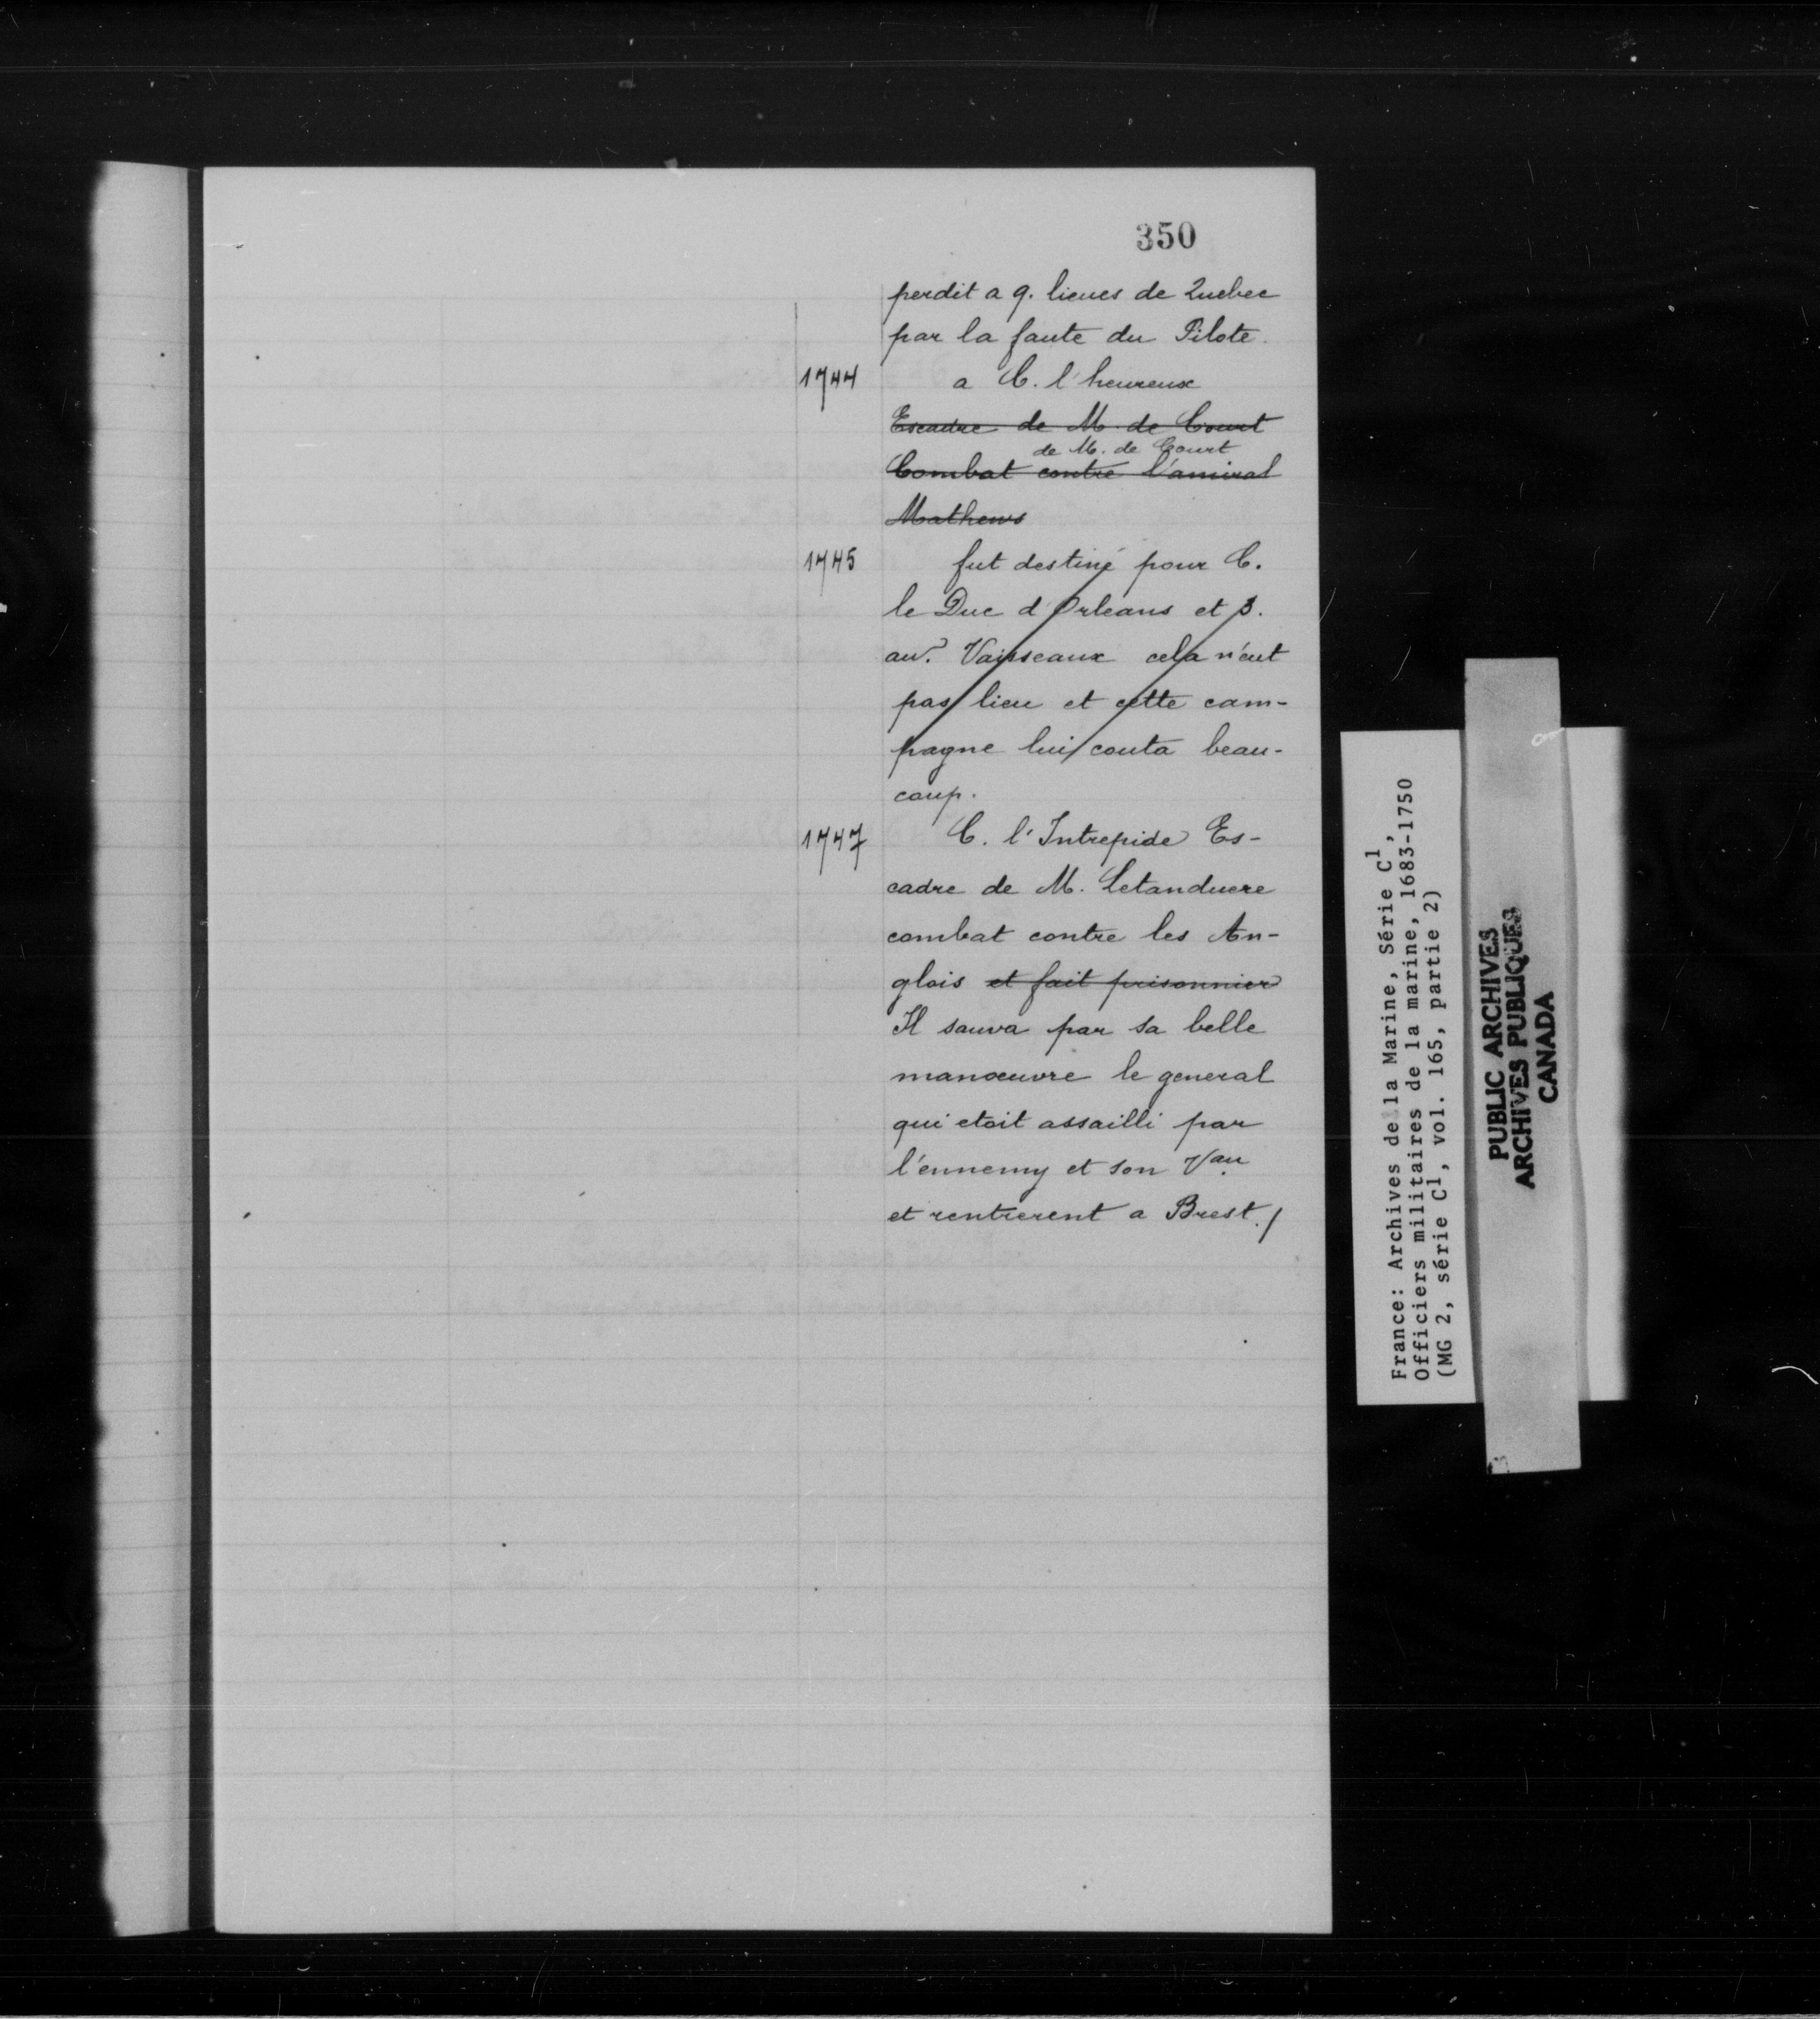 350
perdit a 9. lieues de Quebec
par la faute du Pilote.
1744 a C. l'heureux
Escadre de M. de Court
de M. de Court
Combat contre l'amiral
Mathews
1745 fut destiné pour C.
le Duc d'Orleans et 3.
au. Vaisseaux cela n'eut
pas lieu et cette cam-
pagne lui couta beau-
coup.
1747 C. l'Intrepide Es-
cadre de M. Letanduere
combat contre les An-
glois et fait prisonnier
Il sauva par sa belle
manœuvre le general
qui etoit assailli par
l'ennemy et son Vau
et rentrerent a Brest./
France: Archives de la Marine, Série C1,
Officiers militaires de la marine, 1683-1750
(MG 2, série C1, vol. 165, partie 2)
PUBLIC ARCHIVES
ARCHIVES PUBLIQUES
CANADA